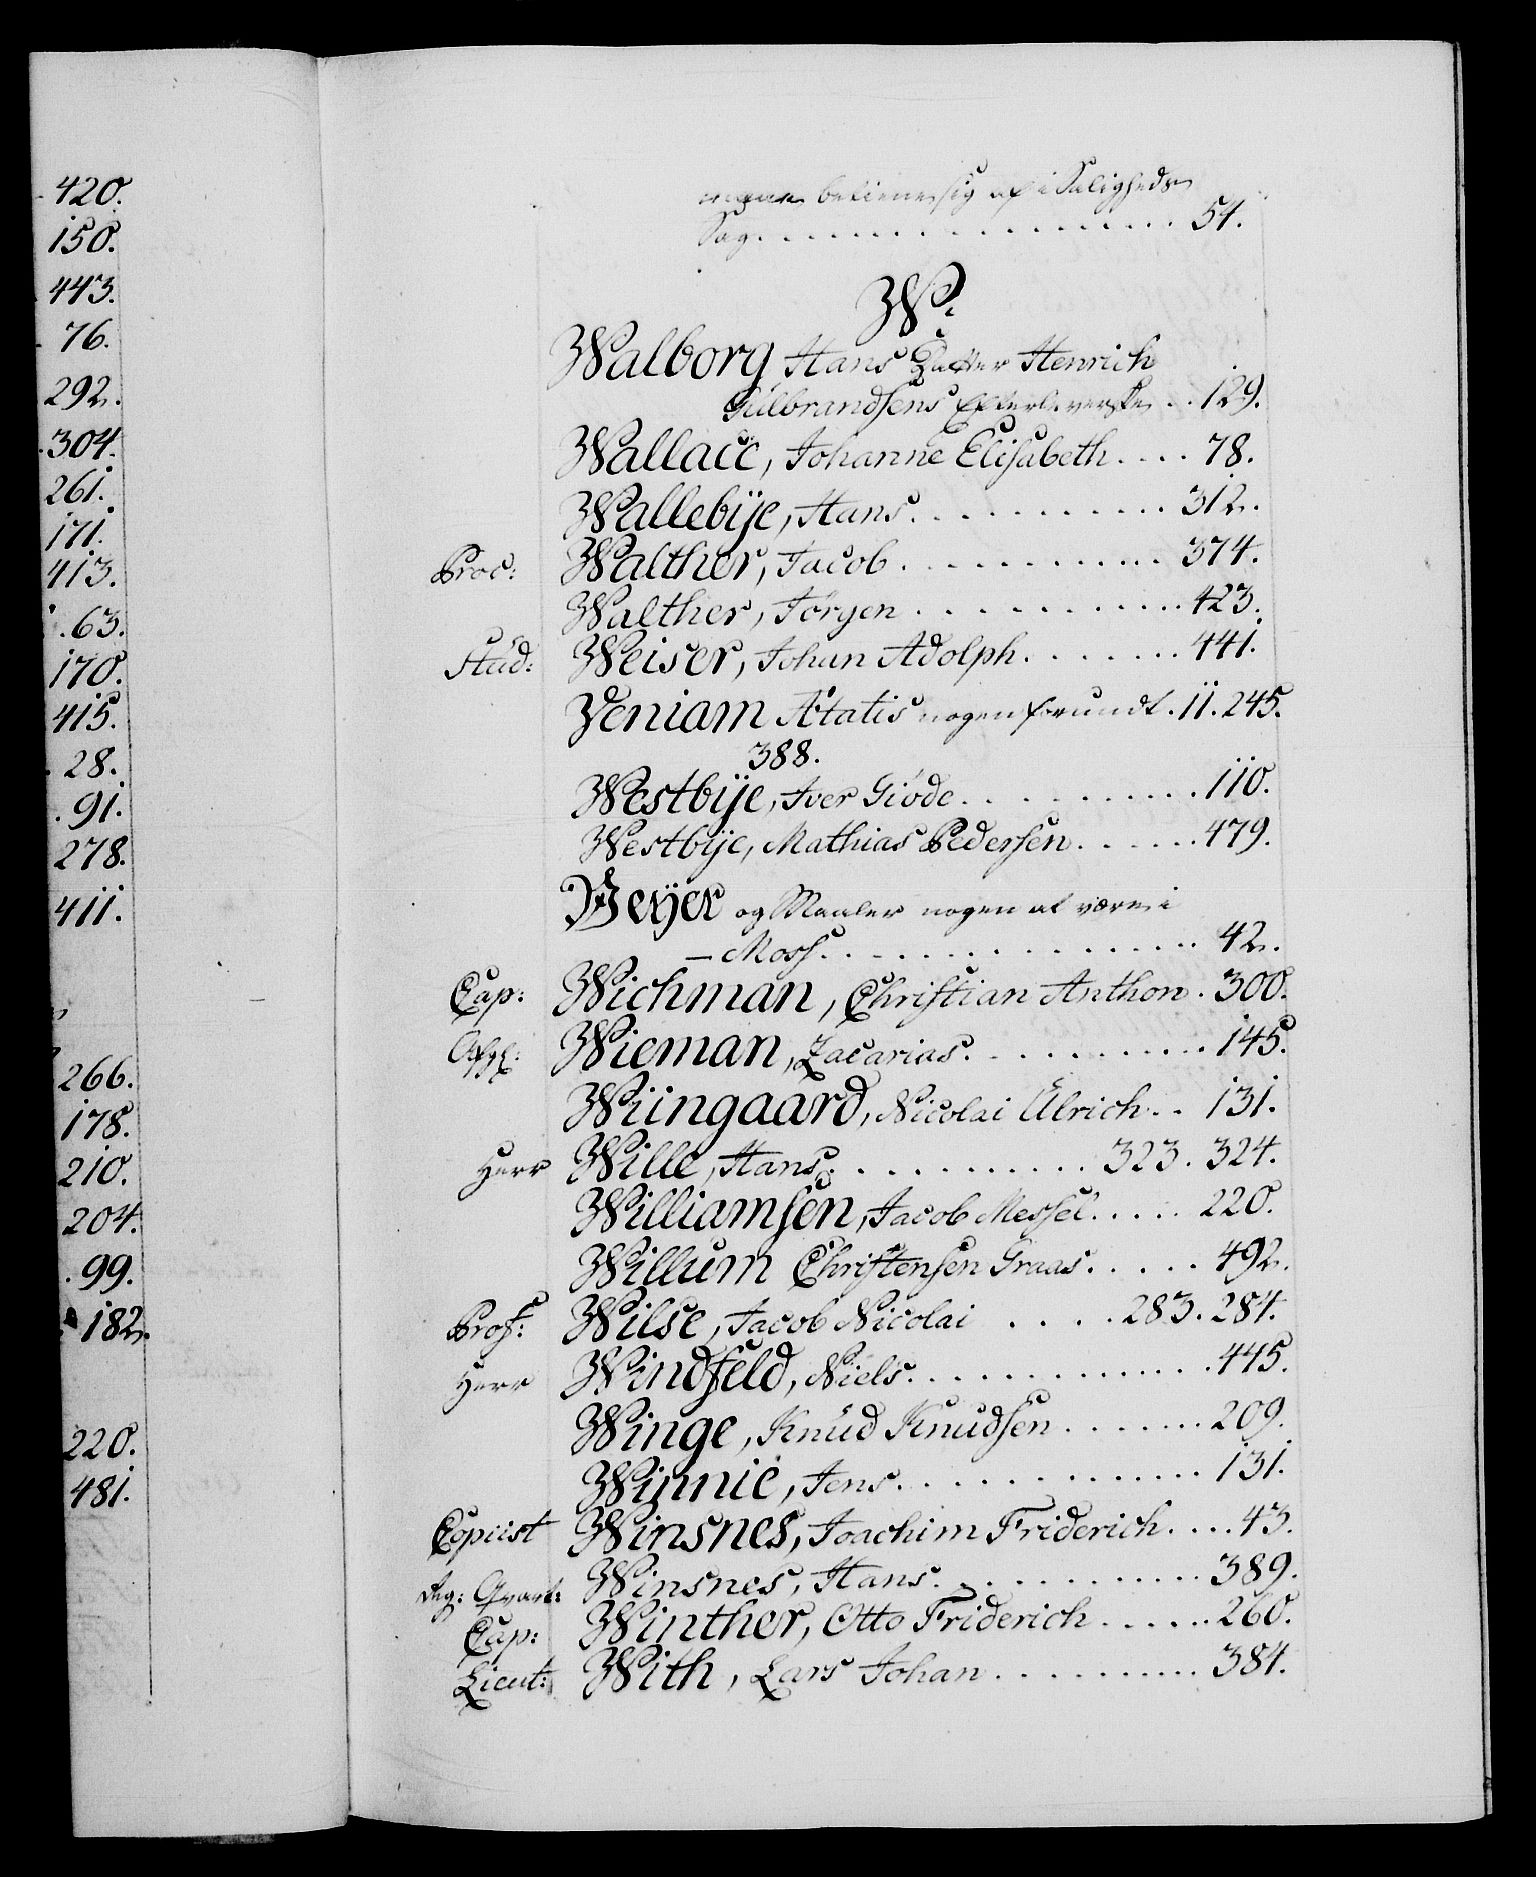 420.
150.
443.
76.
292.
304.
261.
171.
413.
63.
170.
415.
28.
91.
278.
411.
266.
178.
210.
204.
99.
182.
220.
481.
betiene sig af i Saligheds
Sag. . . . . . . . . . . . . . . . 54.
W.
Walborg Hans Datter Henrich
Gulbrandsens Efterleverske . . 129.
Wallace, Johanne Elisabeth . . . . 78.
Wallebÿe, Hans . . . . . . . . . . 312.
Proc: Walther, Jacob . . . . . . . . . . 374.
Walther, Jörgen . . . . . . . . . . 423.
Stud: Weiser, Johan Adolph . . . . . . . 441.
Veniam Ætatis nogen forundt . 11. 245.
388.
Westbÿe, Iver Giöde . . . . . . . . 110.
Westbÿe, Mathias Pedersen . . . . . . 479.
Veÿer og Maaler nogen at være i
— Moss . . . . . . . . . . . . . . 42.
Cap: Wichman, Christian Anthon . 300.
Afg: Wieman, Zacarias . . . . . . . . . 145.
Wiingaard, Nicolai Ulrich . . 131.
Herr Wille, Hans . . . . . . . . . 323. 324.
Williamsen, Jacob Messel . . . . . 220.
Willum Christensen Graas . . . . . 492.
Prof: Wilse, Jacob Nicolai . . . . 283. 284.
Herr Windfeld, Niels . . . . . . . . . . . . 445.
Winge, Knud Knudsen . . . . . . . 209.
Winnie, Jens . . . . . . . . . . . . 131.
Copiist Winsnes, Joachim Friderich . . . . 43.
Reg: Qvart: Winsnes, Hans . . . . . . . . . . 389.
Cap: Winther, Otto Friderich . . . . . 260.
Lieut: With, Lars Johan . . . . . . . . . 384.